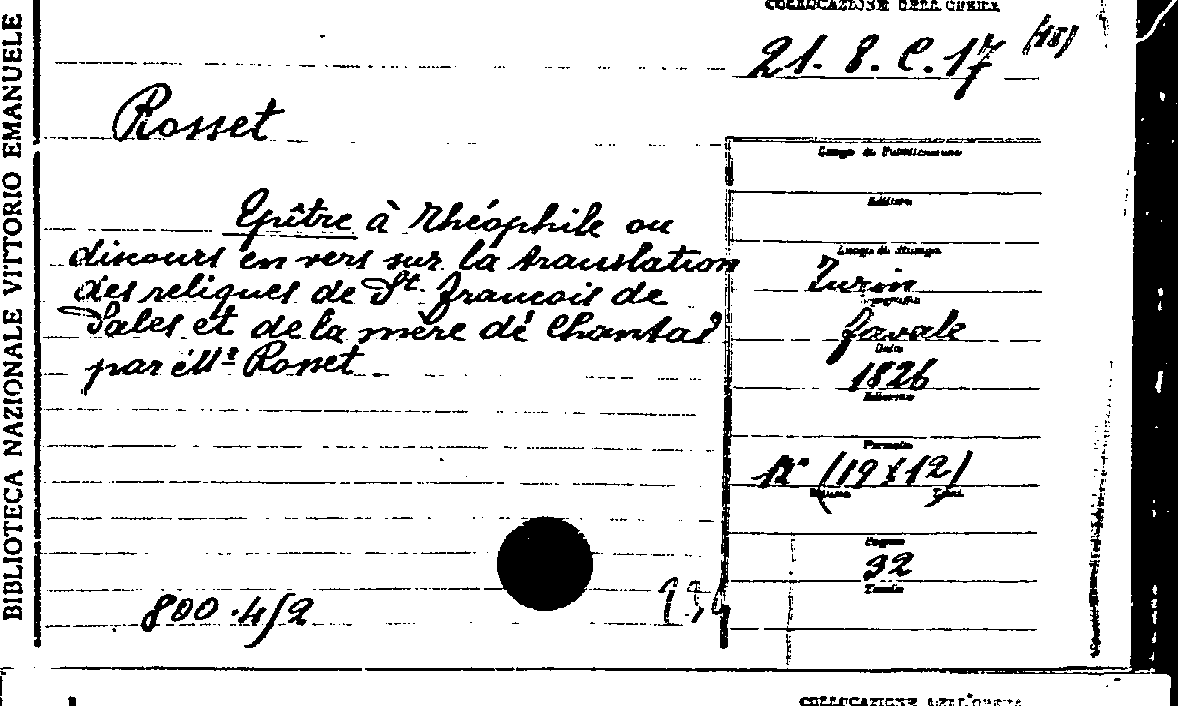 BIBLIOTECA NAZIONALE VITTORIO EMANUELE
COLLOCAZIONE DELL'OPERA
21. 8. C. 17 (18)
Rosset
Epître à Théophile ou
discours en vers sur la translation
des reliques de St. François de
Sales et de la mère de Chantal
par Mr Rosset.
Luogo di Pubblicazione
Editore
Luogo di Stampa
Turin
Tipografia
Favale
Data
1826
Edizione
Formato
12° (19x12)
Volume Tomi
Pagine
32
Tavole
800.4/2
COLLOCAZIONE DELL'OPERA